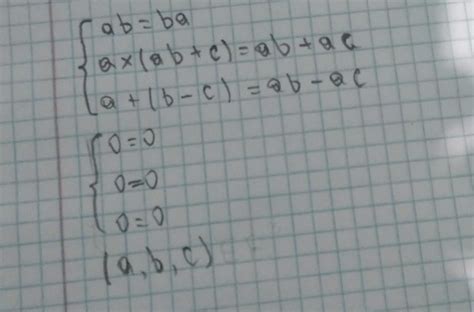 ab = ba
a×(ab+c)=ab+ac
a+(b-c)=ab-ac
0=0
0=0
0=0
(a, b, c)